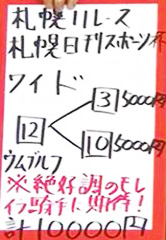 札幌11レース
札幌日刊スポーツ杯
ワイド
3 5000円
12
10 5000円
ウムブルフ
※絶好調のモレ
イラ騎手に期待！
計10000円